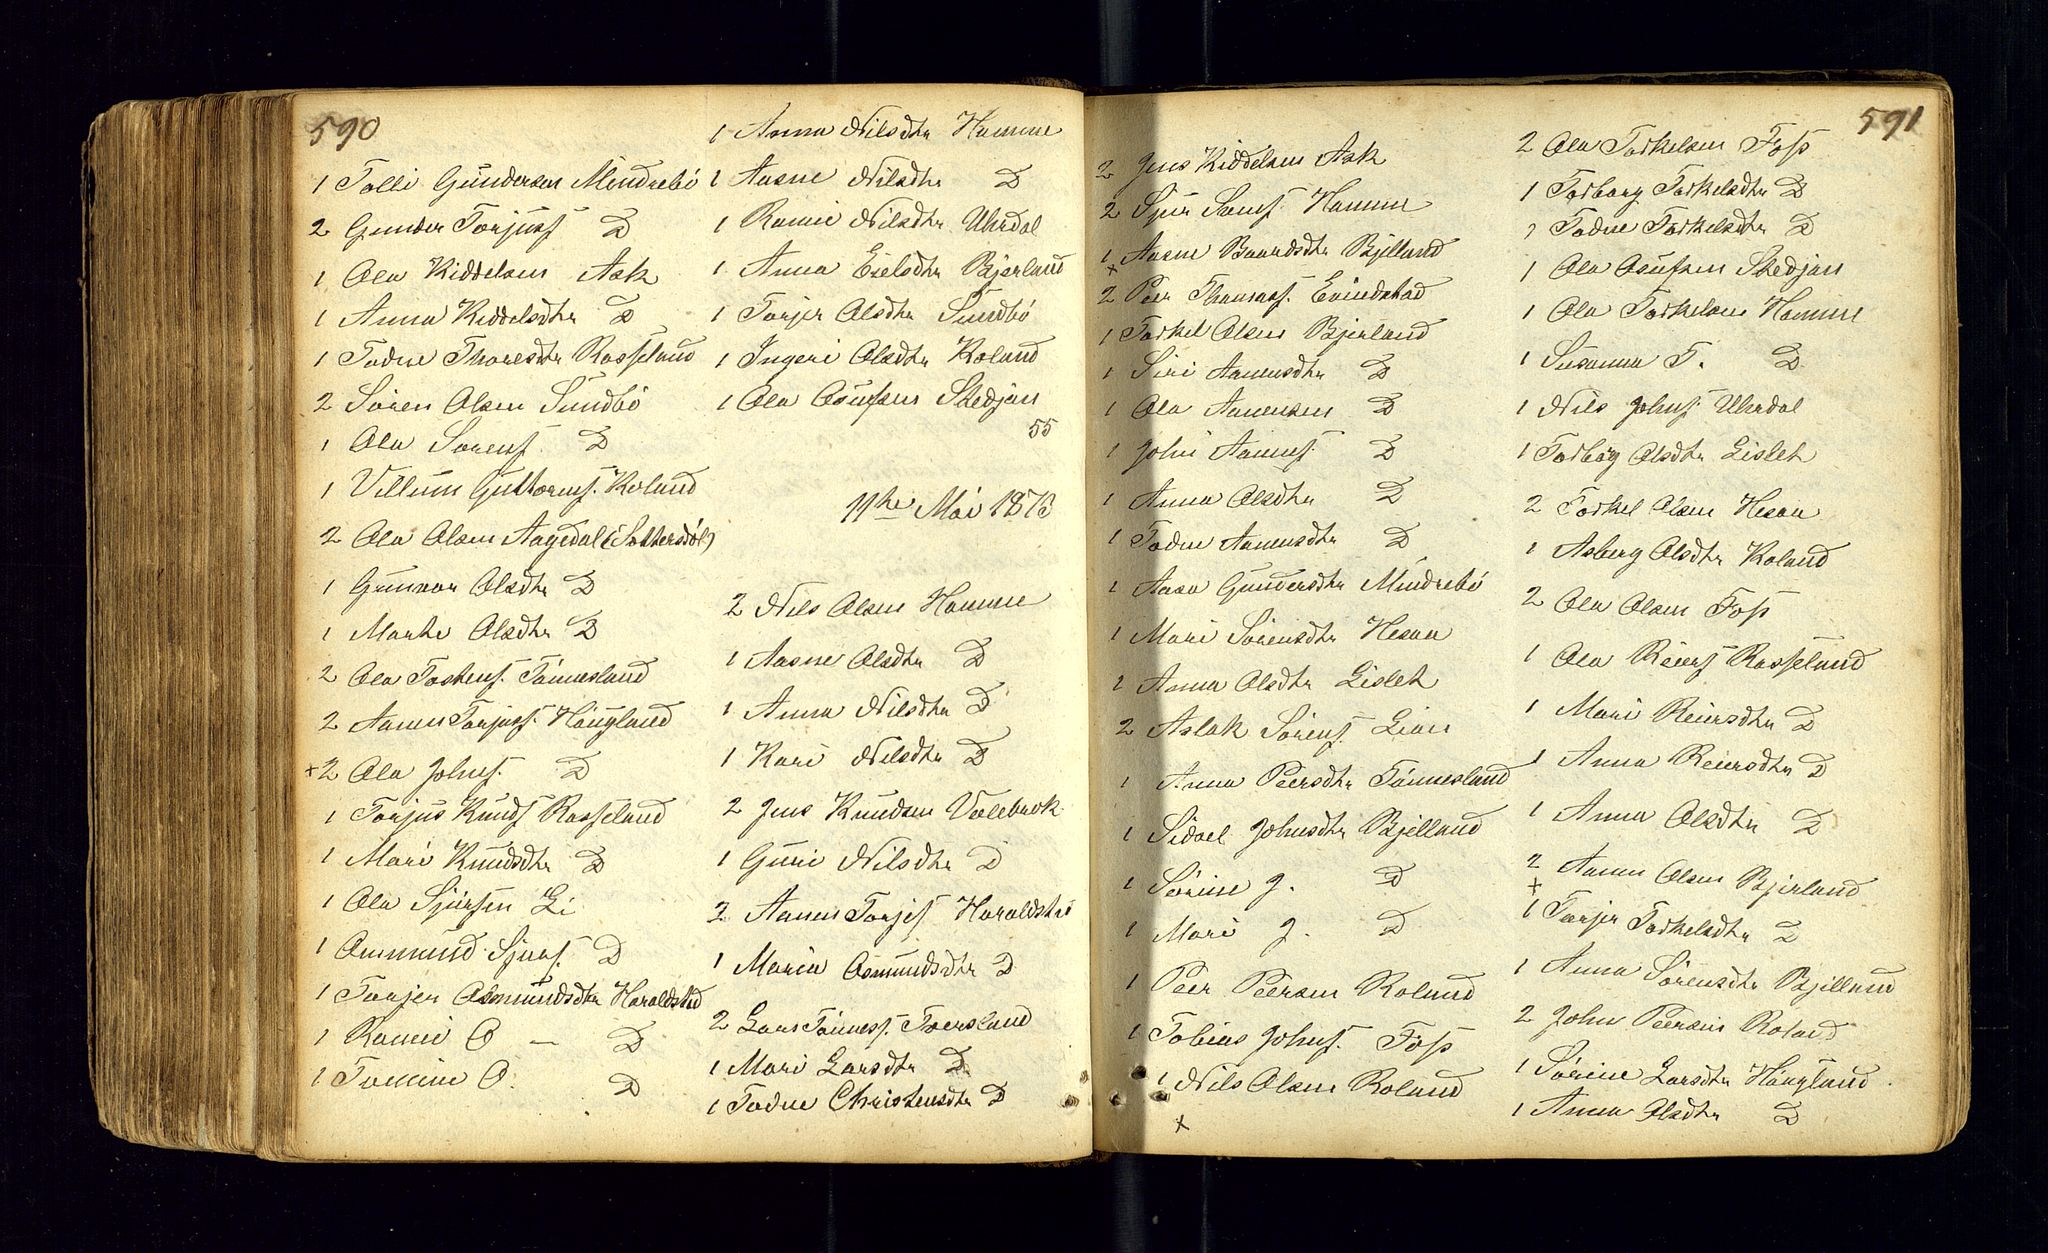 590
1 Tolli Gundersen Mindrebö
2 Gunder Torjusf D
1 Ola Kiddelsen Ask
1 Anna Kiddelsdtr D
1 Todne Thoresdtr Rosseland
2 Sören Olsen Sundbö
1 Ola Sørensf D
1 Villum Guttormsf. Roland
2 Ola Olsen Aagedal (Sattersdöl)
1 Gunvor Olsdtr D
1 Marthe Olsdtr D
2 Ola Tostensf. Tönnesland
2 Aanen Torjusf. Höugland
+2 Ola Johnsf. D
1 Torjus Knudsf Rosseland
1 Mari Knudsdtr D
1 Ola Sjursen Li
1 Aanmund Sjursf. D
1 Torjer Osmundsdtr Haraldstad
1 Rannei O — D
1 Tomine O. D
1 Anna Nilsdtr Homme
1 Aasne Nilsdtr D
1 Rannei Nilsdtr Uhrdal
1 Anna Eselsdtr Bjerland
1 Torjer Olsdtr Sundbö
1 Ingeri Olsdtr Roland
1 Ola Osufsen Skedjan
55
11te Mai 1873
2 Nils Olsen Homme
1 Aasne Olsdtr D
1 Anna Nilsdtr D
1 Kari Nilsdtr D
2 Jens Knudsen Valebrok
1 Guri Nilsdtr D
2 Aanen Torjesf Haraldstad
1 Maria Osmundsdtr D
2 Lars Tönnesf. Tversland
1 Mari Larsdtr D
1 Todne Christensdtr D
591
2 Jens Kiddelsen Ask
2 Sjur Samsf. Homme
1 Aasne Baardsdtr Bjelland
+
2 Peer Thomasf. Evindstad
1 Torkel Olsen Bjerland
1 Siri Aanensdtr D
1 Ola Aanensen D
1 John Aanensf. D
1 Anna Olsdtr D
1 Todne Aanensdtr D
1 Aasa Gundersdtr Mindrebö
1 Mari Sörensdtr Hesaa
1 Anna Olsdtr Lisleh
2 Aslak Sörensf. Lian
1 Anna Peersdtr Tönnesland
1 Sidsel Johnsdtr Bjelland
1 Sörine J. D
1 Mari J. D
1 Peer Peersen Roland
1 Tobias Johnsf. Foss
1 Nils Olsen Roland
+
2 Ola Torkelsen Foss
1 Torborg Torkelsdtr D
1 Todne Torkelsdtr D
1 Ola Osufsen Skedjan
1 Ola Torkelsen Homme
1 Susanna T. D
1 Nils Johnsf. Uhrdal
1 Torborg Olsdtr Lisleh
2 Torkel Olsen Hesaa
1 Asberg Olsdtr Roland
2 Ola Olsen Foss
1 Ola Reiersf Rosseland
1 Mari Reiersdtr D
1 Anna Reiersdtr D
1 Anna Olsdtr D
2 Aanen Olsen Bjerland
+
1 Torjer Torkelsdtr D
1 Anna Sörensdtr Bjelland
2 John Peersen Roland
1 Sörine Larsdtr Höugland
1 Anna Olsdtr D